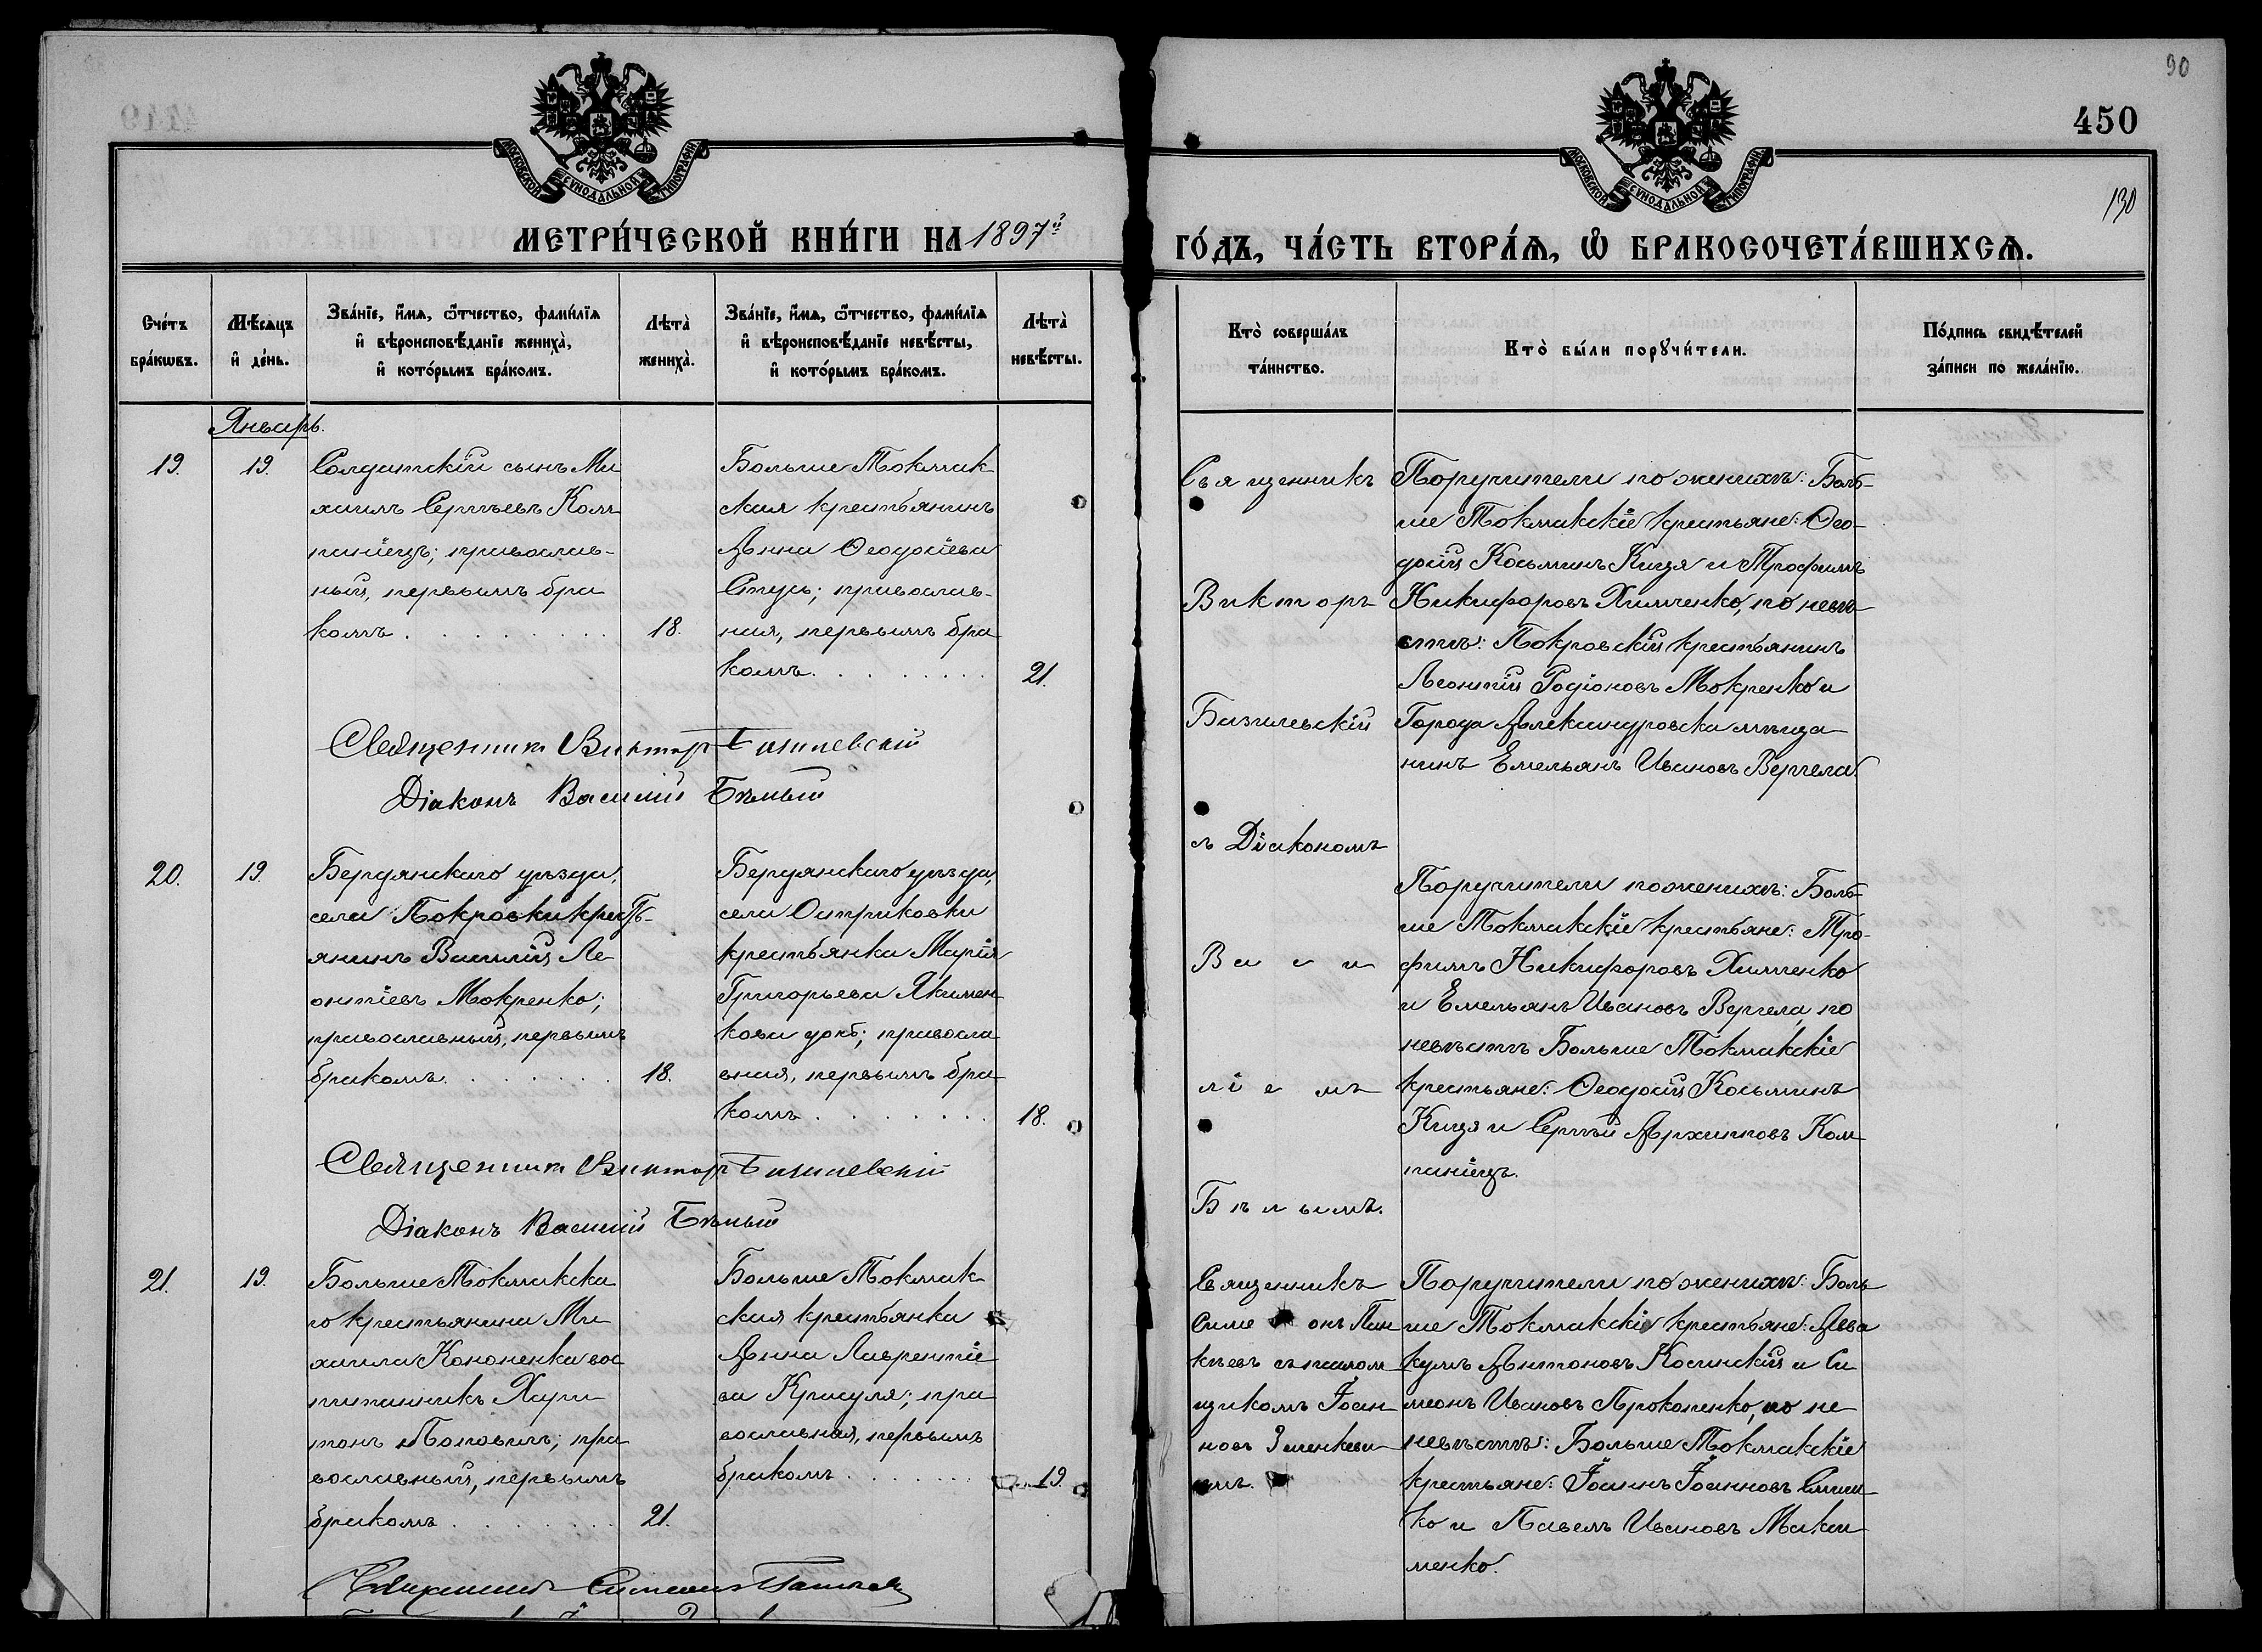 90
450
130
МОСКОВСКОЙ СѴНОДАЛЬНОЙ ТИПОГРАФІИ
МОСКОВСКОЙ СѴНОДАЛЬНОЙ ТИПОГРАФІИ
МЕТРИ́ЧЕСКОЙ КНИ́ГИ НА 1897й
ГО́ДЪ, ЧА́СТЬ ВТОРА́Ѧ, Ѽ БРАКОСОЧЕТА́ВШИХСѦ.
Сче́тъ бра́кѡвъ.
Мѣ́сѧцъ и҆ де́нь.
Зва́нїе, и҆́мѧ, ѻ҆́тчество, фами́лїѧ и҆ вѣроисповѣ́данїе женихà, и҆ кото́рымъ бра́комъ.
Лѣтà женихà.
Зва́нїе, и҆́мѧ, ѻ҆́тчество, фами́лїѧ и҆ вѣроисповѣ́данїе невѣ́сты, и҆ кото́рымъ бра́комъ.
Лѣтà невѣ́сты.
Ктò соверша́лъ та́инство.
Ктò бы́ли порꙋчи́тели.
По́дпись свидѣ́телей за́писи по жела́нїю.
Январь.
19.
19.
Солдатскій сынъ Ми
хаилъ Сергѣевъ Ком
паніецъ; православ-
ный, первымъ бра
комъ
18.
Больше Токмак
ская крестьянинъ
Анна Ѳеодосіева
Стусь; православ-
ная, первымъ бра
комъ
21.
Священникъ
Викторъ
Базилевскій
съ Діакономъ
Васи
ліемъ
Бѣлымъ.
Поручители по женихѣ: Боль-
ше Токмакскіе крестьяне: Ѳео-
досій Косьминъ Кидя и Трофимъ
Никифоровъ Химченко, по невѣ-
стѣ: Покровскій крестьянинъ
Леонтій Родіоновъ Мокренко и
Города Александровска мѣща-
нинъ Емельянъ Ивановъ Вергела
Священникъ Викторъ Базилевскій
Діаконъ Василій Бѣлый
20.
19.
Бердянскаго уѣзда,
села Покровки крест-
янинъ Василій Ле
онтіевъ Мокренко;
православный, первымъ
бракомъ
18.
Бердянскаго уѣзда,
села Остриковки
крестьянка Марія
Григорьева Якимен
кова дочь; правосла
вная, первымъ бра
комъ
18.
Поручители по женихѣ: Боль-
ше Токмакскіе крестьяне: Тро-
фимъ Никифоровъ Химченко
и Емельянъ Ивановъ Вергела, по
невѣстѣ Больше Токмакскіе
крестьяне: Ѳеодосій Косьминъ
Кидя и Сергѣй Архиповъ Ком
паніецъ.
Священникъ Викторъ Базилевскій
Діаконъ Василій Бѣлый
21.
19.
Больше Токмакска
го крестьянина Ми
хаила Кононенка вос
питанникъ Хари
тонъ Поповичъ; пра
вославный, первымъ
бракомъ
21.
Больше Токмак
ская крестьянка
Анна Лаврентіе
ва Красуля; пра
вославная, первымъ
бракомъ
19.
Священникъ
Симеонъ Пан
кѣевъ съ псалом
щикомъ Іоан
новъ Зменкеви
чмъ.
Поручители по женихѣ: Боль
ше Токмакскіе крестьяне: Авва
кумъ Антоновъ Косинскій и Си
меонъ Ивановъ Прокопенко, по не
невѣстѣ: Больше Токмакскіе
крестьяне: Іоаннъ Іоанновъ
ко и Павелъ Ивановъ Мака
менко.
Священникъ Симеонъ Панкѣевъ